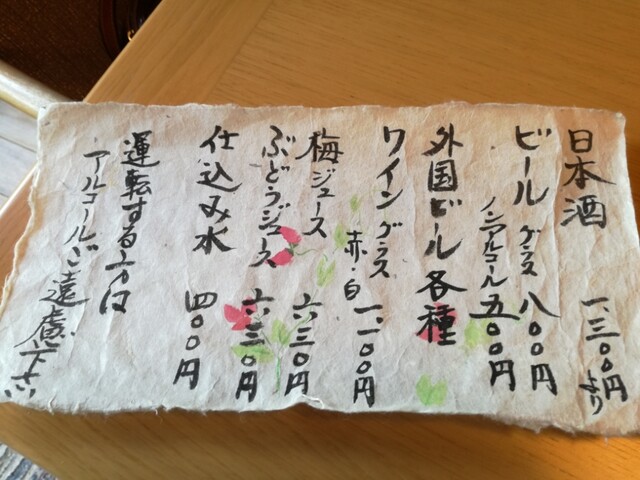 日本酒 一、三〇〇円より
ビール グラス 八〇〇円
ノンアルコール 五〇〇円
外国ビール各種
ワイン グラス 一、一〇〇円
赤・白
梅ジュース 六三〇円
ぶどうジュース 六三〇円
仕込み水 四〇〇円
運転する方は
アルコールご遠慮下さい